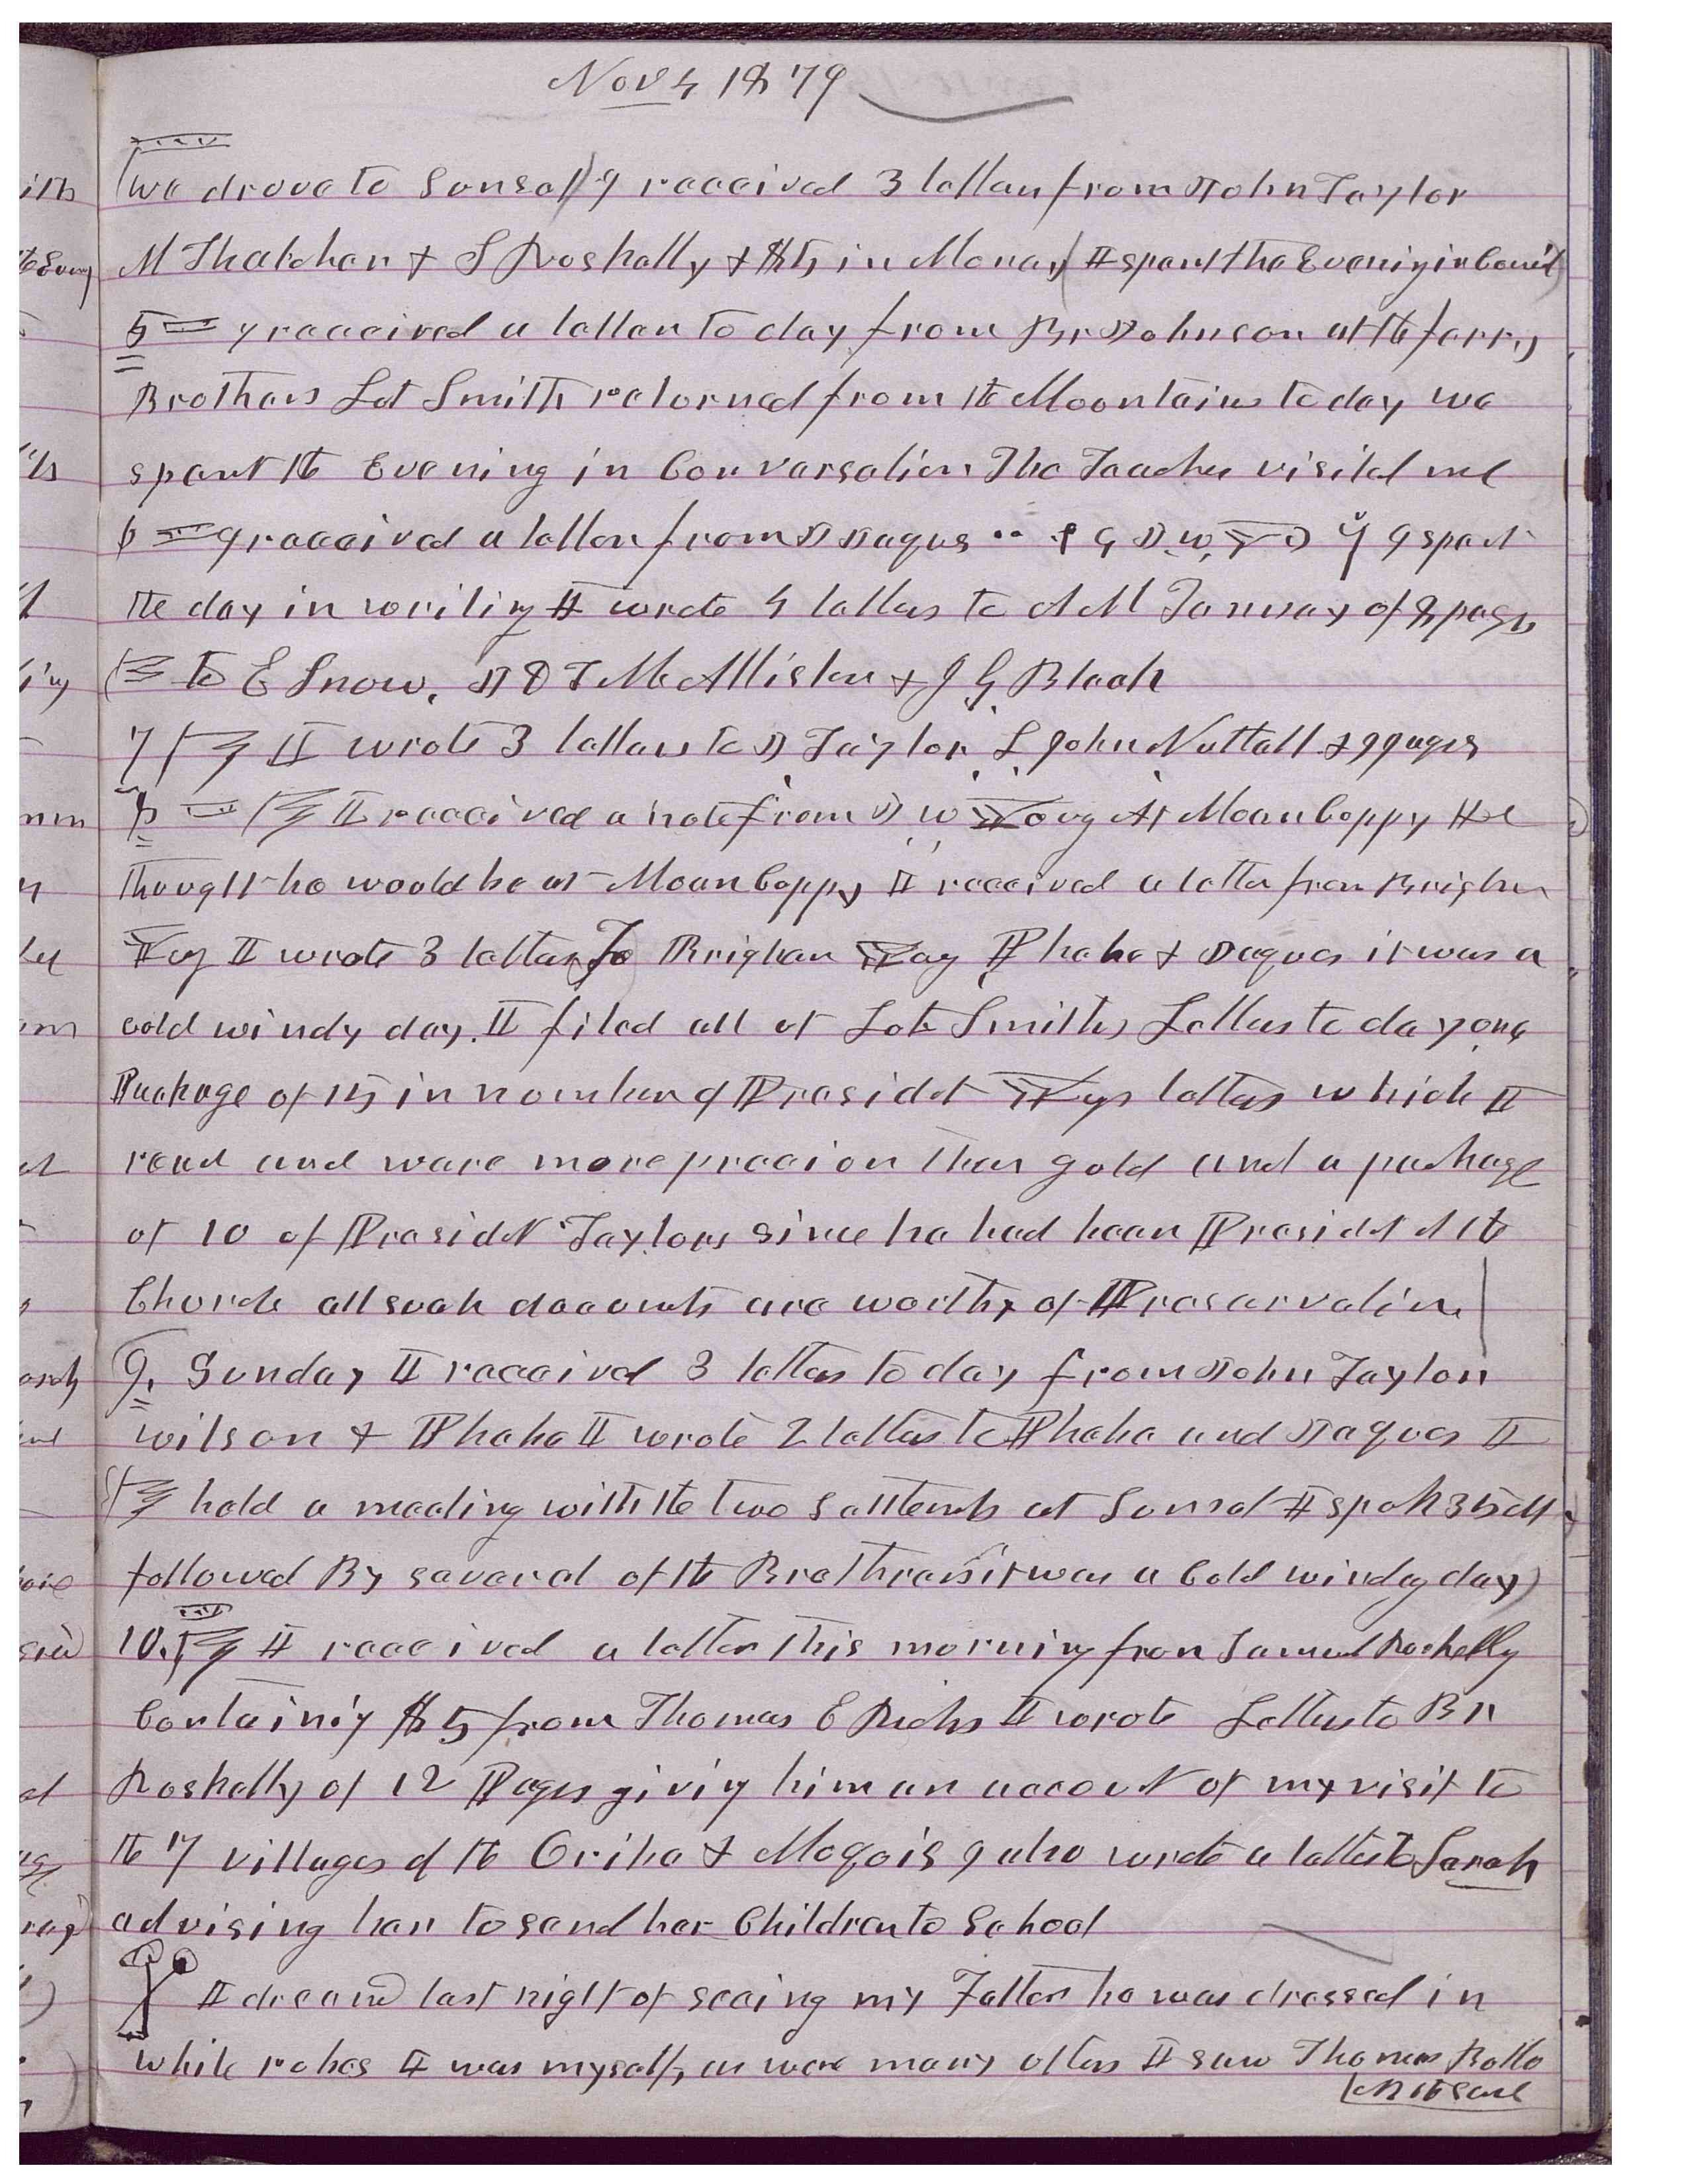 Nov 4 1879
we drove to Sunset I received 3 letters from John Taylor
M Thatcher & S Roskelly & $5 in Money I spent the Evening in Council
5 I received a letter to day from Br Johnson at the ferry
Brothers Lot Smith returned from the Mountains to day we
spent the Evening in Conversation The Teachers visited me
6 I received a letter from Jaques I spent
the day in writing I wrote 4 letters to A M Tenney of 8 pages
to E Snow, J D T McAllister & J G Bleak
7 I wrote 3 letters to J Taylor L John Nuttall & Jaques
8 I received a note from J W Young At Moan Coppy He
thought he would be at Moan Coppy I received a letter from Brigham
Yg I wrote 3 letters To Brigham Yg Phebe & Jaques it was a
cold windy day. I filed all of Lot Smiths Letters to day one
Package of 15 in number of Presidet Ygs letters which I
read and were more precion than gold and a package
of 10 of Presidet Taylors since he had been Presidet of the
Church all such docomts are worthy of Preservation
9, Sunday I received 3 letters to day from John Taylor
Wilson & Phebe I wrote 2 letters to Phebe and Jaques I
held a meeting with the two Settlemts at Sunset I spok 35 M
followed By several of the Brethren it was a Cold windy day
10. I received a letter this morning from Samuel Roskelly
Containing $5 from Thomas E Ricks I wrote Letter to Br
Roskelly of 12 Pages giving him an account of my visit to
the 7 villages of the Oriba & Moquis I also wrote a letter to Sarah
advising her to send her Children to School
I dreamed last night of seeing my Father he was dressed in
white robes I was myself, as were many others I saw Thomas Bullo